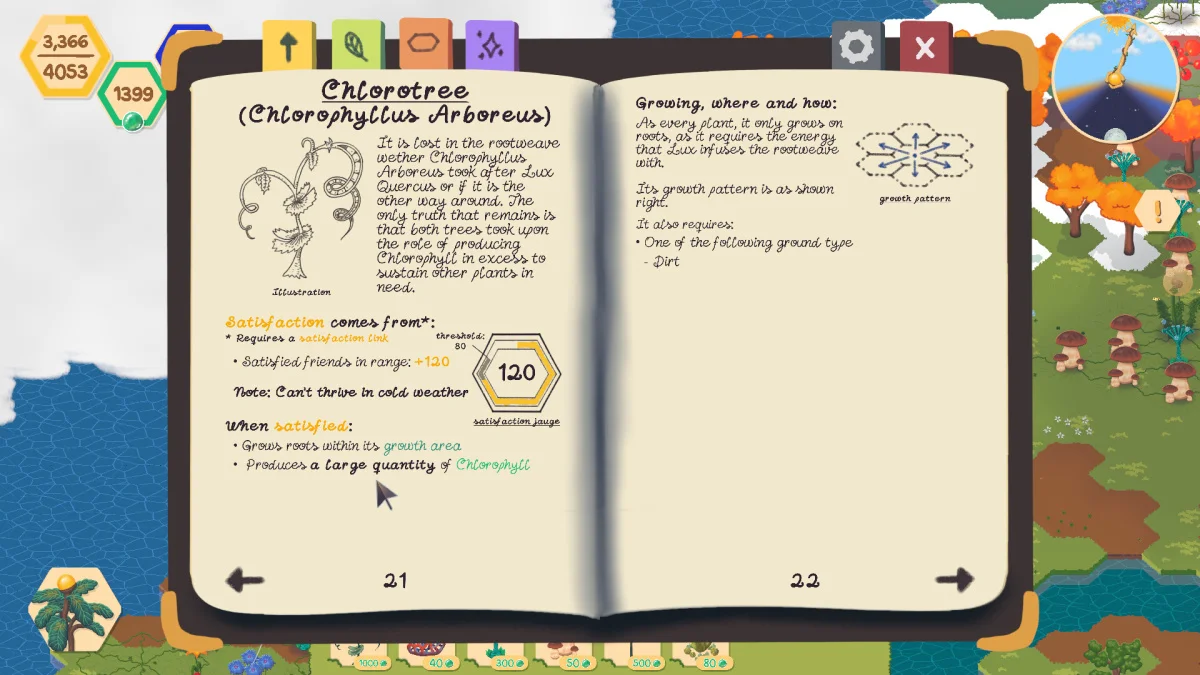 3,366
4053
1399
Chlorotree
(Chlorophyllus Arboreus)
It is lost in the rootweave
wether Chlorophyllus
Arboreus took after Lux
Quercus or if it is the
other way around. The
only truth that remains is
that both trees took upon
the role of producing
Chlorophyll in excess to
sustain other plants in
need.
Illustration
Satisfaction comes from*:
* Requires a satisfaction link
• Satisfied friends in range: +120
Note: Can't thrive in cold weather
threshold:
80
120
satisfaction jauge
When satisfied:
• Grows roots within its growth area
• Produces a large quantity of Chlorophyll
21
Growing, where and how:
As every plant, it only grows on
roots, as it requires the energy
that Lux infuses the rootweave
with.
Its growth pattern is as shown
right.
growth pattern
It also requires:
• One of the following ground type
- Dirt
22
!
1000
40
300
50
500
80